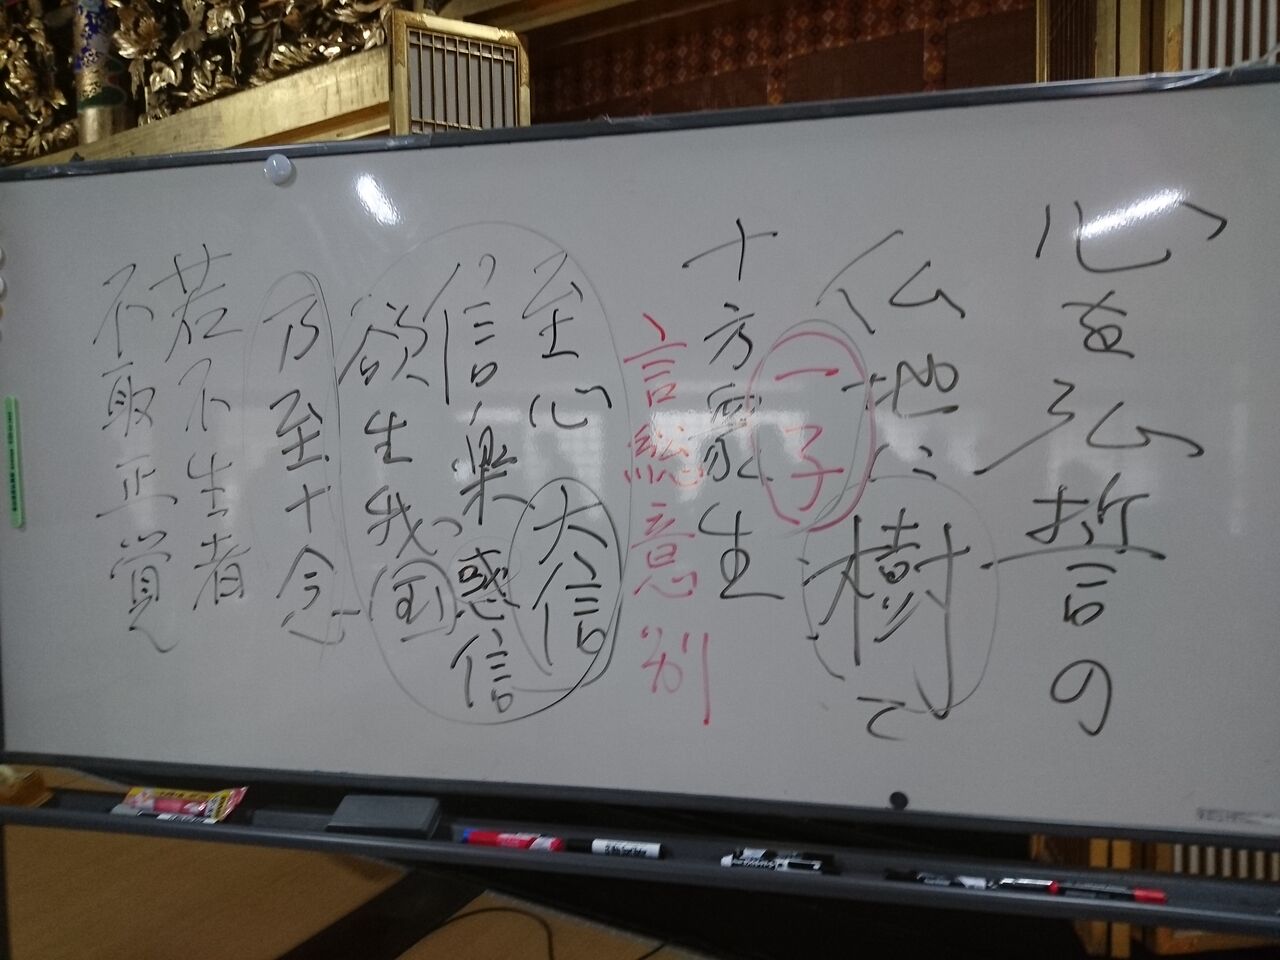 心を弘誓の
仏地に樹て
一子
十方衆生
言総意別
至心
大信
信楽
惑信
欲生我国
乃至十念
若不生者
不取正覚